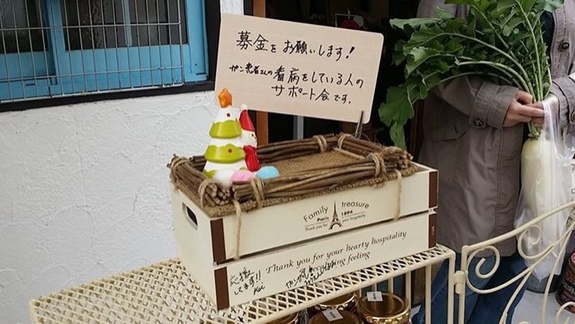 募金をお願いします!
ガン患者さんの看病をしている人の
サポート会です。
Family treasure
Paris 1894
Thank you for your hearty hospitality
Thank you for your hearty hospitality
feeling
応援
してます!!